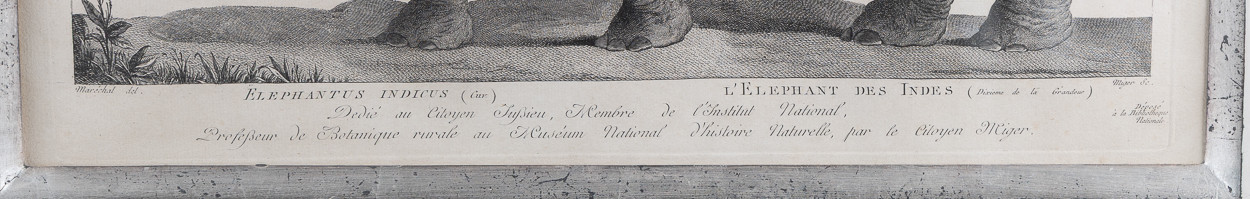 Maréchal del.
ELEPHANTUS INDICUS (Cuv.)
L'ELEPHANT DES INDES (Dixieme de la Grandeur)
Miger Sc.
Dedié au Citoyen Jussieu, Membre de l'Institut National,
Professeur de Botanique rurale au Muséum National d'histoire Naturelle, par le Citoyen Miger.
Déposé
à la Bibliotheque
Nationale